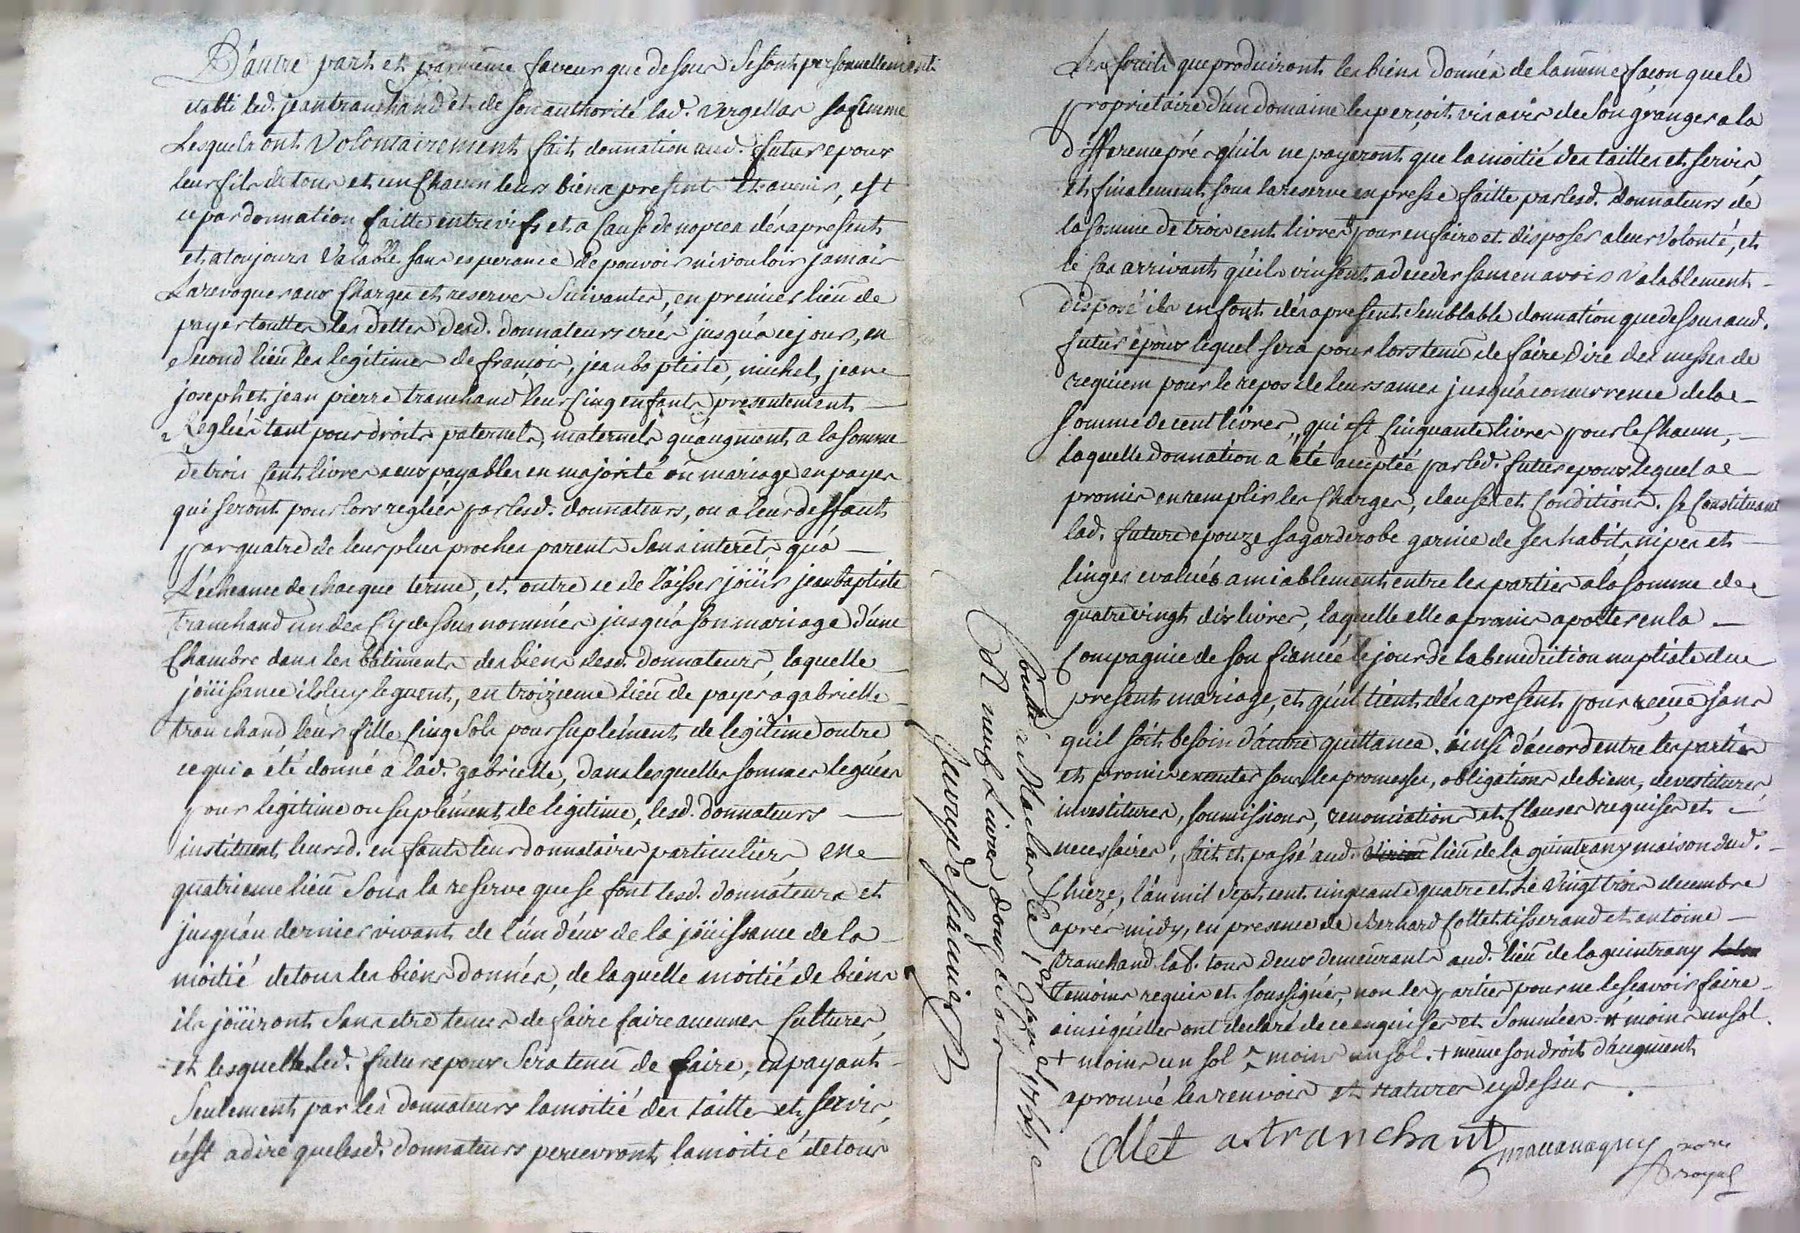 D'autre part et par même faveur que dessus se sont personnellement
etabli led. jean tranchand et de son authorité lad. vergellas sa femme
Lesquels ont volontairement fait donnation aud. futur epoux
leur fils de tous et un chacun leurs biens presents et avenir, et
ce par donnation faitte entrevifs et a cause de nopces dés apresent
et atoujours valable sans esperance de pouvoir ni vouloir jamais
La revoquer aux charges et reserves suivantes, en premier lieu de
payer touttes les dettes desd. donnateurs créés jusqu'a ce jour, en
second lieu les legitimes de françois, jean baptiste, michel, jean
joseph et jean pierre tranchand leurs cinq enfants presentement
Reglées tant pour droits paternels, maternels qu'augment a la somme
de trois cent livres a eux payables en majorité ou mariage en payes
qui seront pour lors reglées par lesd. donnateurs, ou a leur deffaut
par quatre de leurs plus proches parents sans interets qu'a
L'écheance de chacque terme, et outre ce de laisser joüir jean baptiste
Tranchand un des cy dessus nommés jusqu'a son mariage d'une
Chambre dans les batiments des biens desd. donnateurs, laquelle
joüissance ils luy leguent, en troizieme lieu de payer a gabrielle
tranchand leur fille cinq sols pour suplément de legitime outre
ce qui a été donné a lad. gabrielle, dans lesquelles sommes leguées
pour legitime ou suplément de legitime, lesd. donnateurs
instituent leursd. enfants leurs donnataires particuliers en
quatrieme lieu sous la reserve que se font lesd. donnateurs et
jusqu'au dernier vivant de l'un d'eux de la joüissance de la
moitié de tous les biens donnés, de laquelle moitié de biens
ils joüiront sans etre tenus de faire faire aucunes cultures,
et lesquelles led. futur epoux sera tenu de faire, en payant
seulement par les donnateurs la moitié des tailles et servis,
c'est a dire que lesd. donnateurs percevront la moitié de tous
Les fruits que produiront les biens donnés de la même façon que le
proprietaire d'un domaine les perçoit vis a vis de son granger a la
difference prés qu'ils ne payeront que la moitié des tailles et servis,
et finalement sous la reserve expresse faitte par lesd. donnateurs de
la somme de trois cent livres pour en faire et disposer a leur volonté, et
le cas arrivant qu'ils vinsent a deceder sans en avoir valablement
disposé ils en font dés apresent semblable donnation que dessus aud.
futur époux lequel sera pour lors tenu de faire dire des messes de
requiem pour le repos de leurs ames jusqu'a concurrence de la
somme de cent livres, qui est cinquante livres pour le chacun,
laquelle donnation a été acceptée par led. futur epoux lequel a
promis en remplir les charges, clauses et conditions. se constituant
lad. future epouze sa garderobe garnie de ses habits nipes et
linges evalués amiablement entre les parties a la somme de
quatre vingt dix livres, laquelle elle a promis aporter en la
Compagnie de son fiancé le jour de la benediction nuptiale du
present mariage, et qu'il tient dés apresent pour reçue sans
qu'il soit besoin d'autre quittance. ainsi d'accord entre les parties
et promis executer sous les promesses, obligations de biens, devestitures
investitures, soumissions, renonciations et clauses requises et
necessaires, fait et passé aud. lieu de la quintrany maison dud.
Chieze, l'an mil sept cent cinquante quatre et le vingt trois decembre
aprés midy, en presence de Bernard Collet tisserand et antoine
tranchand lab. tous deux demeurants aud. lieu de la quintrany
temoins requis et soussignés, non les parties pour ne le sçavoir faire
ainsi qu'elles ont declaré de ce enquises et sommées # moins un sol.
+ moins un sol moins un sol. + meme son droit d'augment
aprouvé les renvois et ratures cy dessus.
Collet a. tranchant
royal
Contlé a Maclas le
R neuf livres douze sols